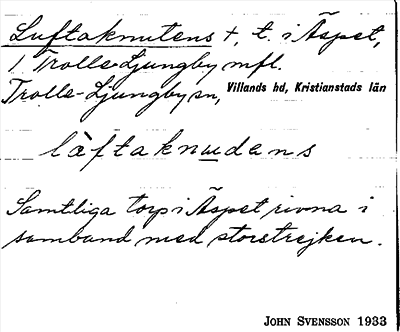 Luftaknutens +, t. i Äspet,
1 Trolle-Ljungby mfl.
Trolle-Ljungby sn, Villands hd, Kristianstads län
làftaknudans
Samtliga torp i Äspet rivna i
samband med storstrejken.
JOHN SVENSSON 1933